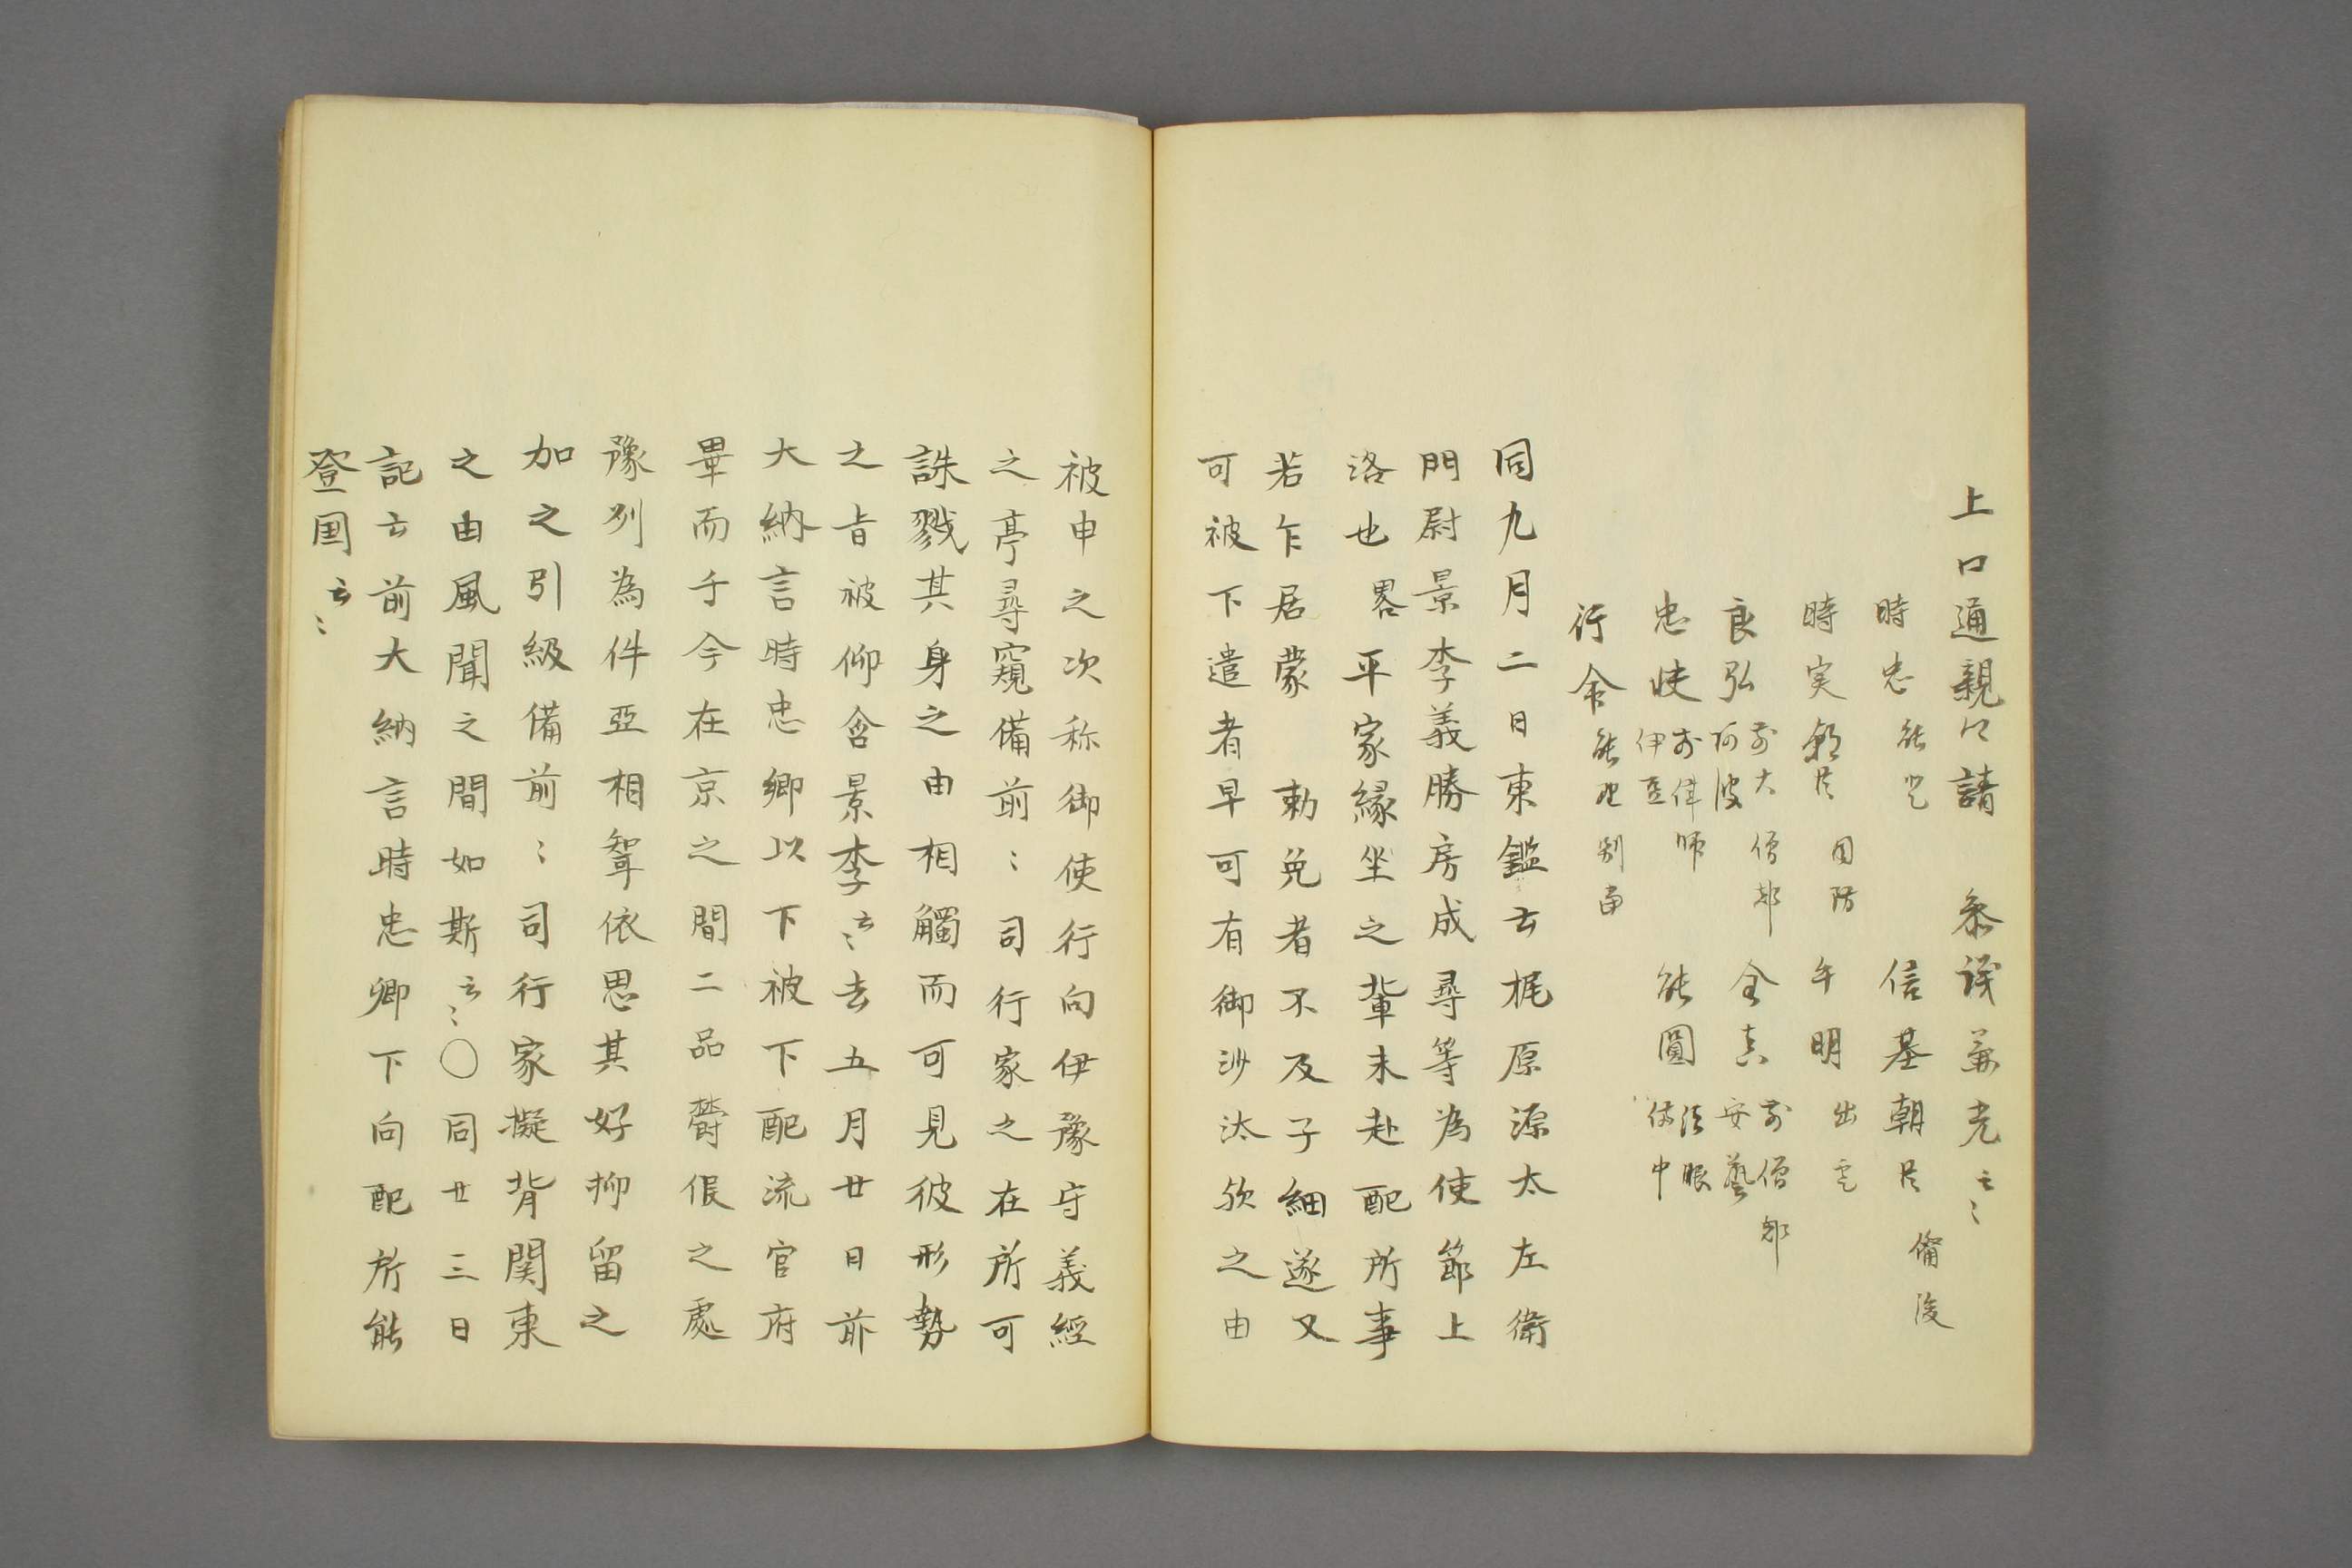 上口通親口請 参議兼光云〻
時忠能登 信基朝臣備後
時実朝臣周防 午明出雲
良弘前大僧都阿波 全真前僧都安藝
忠快前律師伊豆 能圓法眼備中
行舎能野別當
同九月二日東鑑云梶原源太左衛
門尉景李義勝房成尋等為使節上
洛也畧平家縁坐之輩未赴配所事
若乍居蒙 勅免者不及子細遂又
可被下遣者早可有御沙汰欤之由
被申之次称御使行向伊豫守義經
之亭尋窺備前〻司行家之在所可
誅戮其身之由相觸而可見彼形勢
之旨被仰含景李云〻去五月廿日前
大納言時忠卿以下被下配流官府
畢而于今在京之間二品欝㑆之處
豫刕為件亞相聟依思其好抑留之
加之引級備前〻司行家擬背関東
之由風聞之間如斯云〻〇同廿三日
記云前大納言時忠卿下向配所能
登国云〻